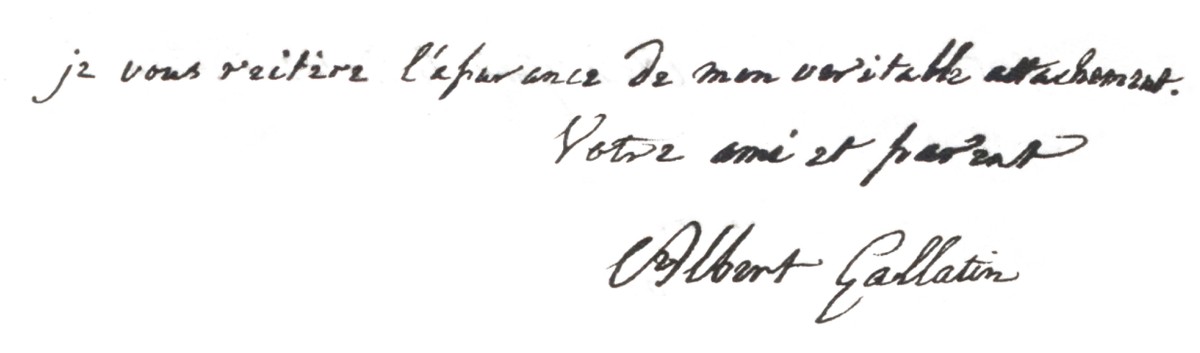 je vous reitère l'assurance de mon veritable attachement.
Votre ami et parent
Albert Gallatin